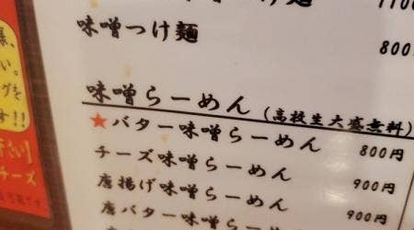 味噌つけ麺
800
味噌らーめん (高校生大盛無料)
★バター味噌らーめん 800円
チーズ味噌らーめん 900円
唐揚げ味噌らーめん 900円
唐バター味噌らーめん
い。
す!!
チーズ